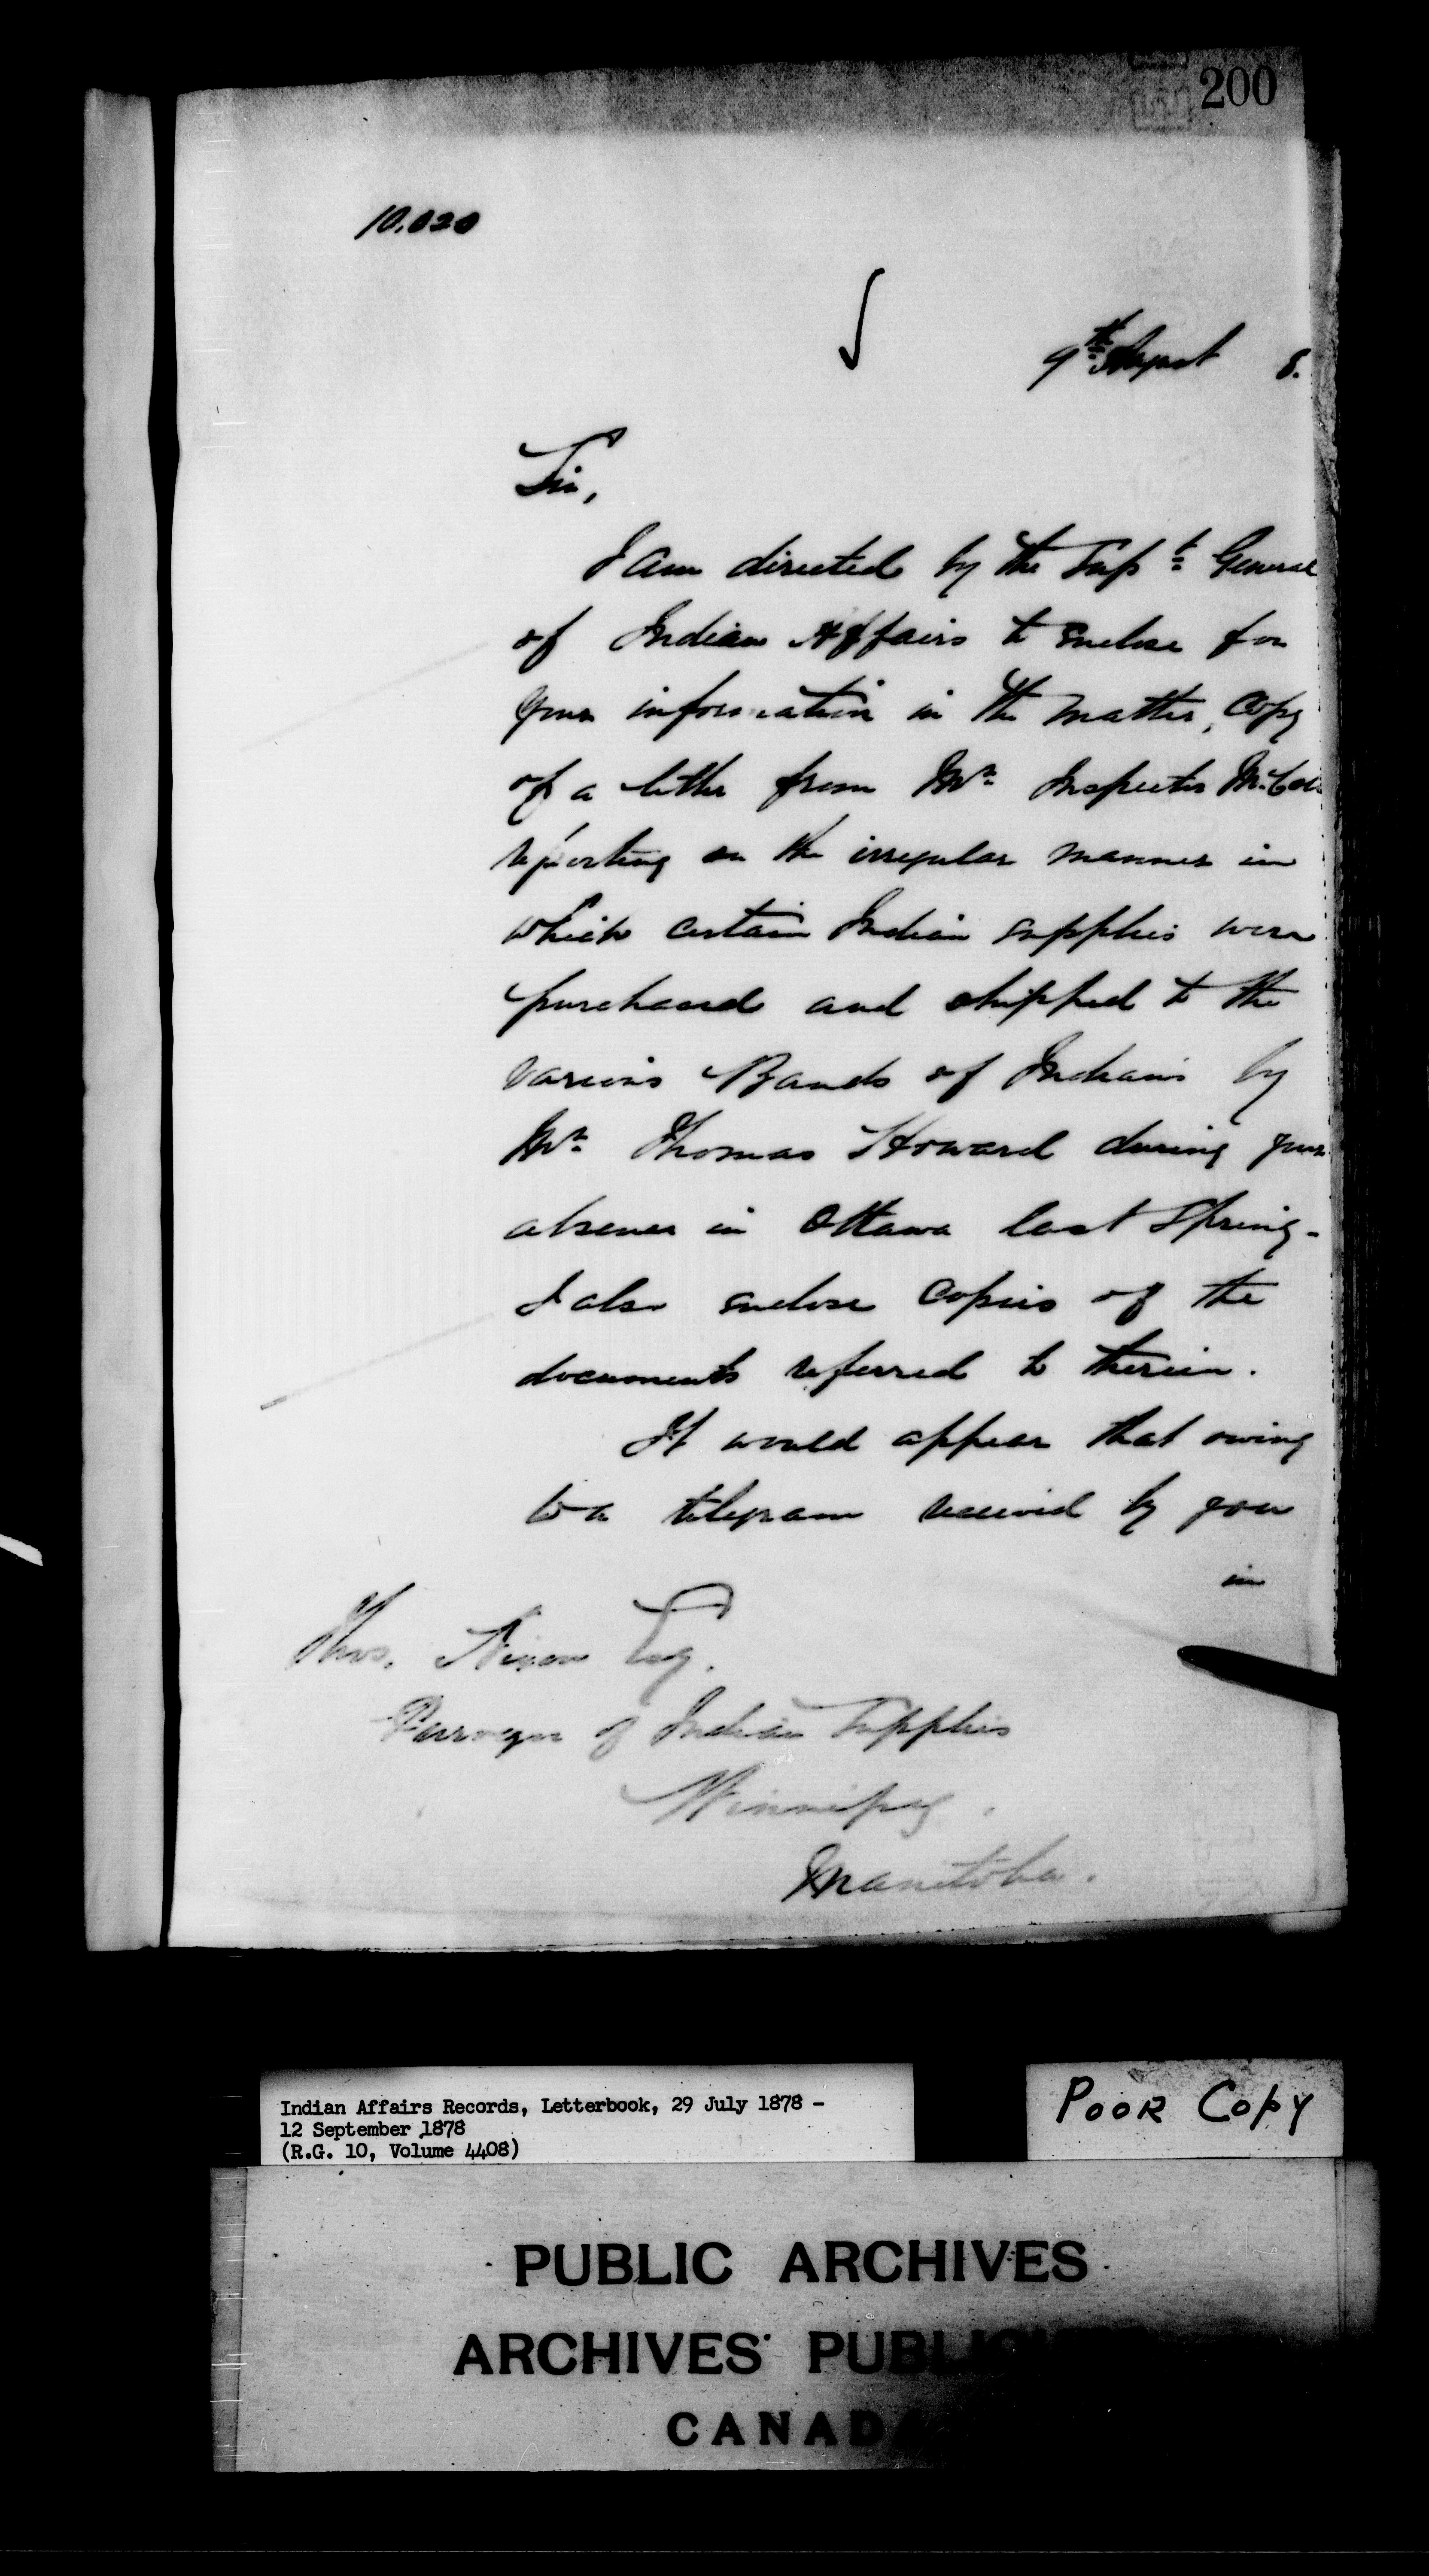 200
10.020
9th August 8.
Sir,
I am directed by the Supt General
of Indian Affairs to enclose for
your information in the matter, copy
of a letter from Mr Inspector McCol
reporting on the irregular manner in
which certain Indian supplies were
purchased and shipped to the
various Bands of Indians by
Mr Thomas Howard during your
absence in Ottawa last Spring.
I also enclose copies of the
documents referred to therein.
It would appear that owing
to a telegram received by you
in
Thos. Nixon Esq.
Purveyor of Indian Supplies
Winnipeg.
Manitoba.
Indian Affairs Records, Letterbook, 29 July 1878 -
12 September 1878
(R.G. 10, Volume 4408)
POOR COPY
PUBLIC ARCHIVES
ARCHIVES PUBL
CANADA